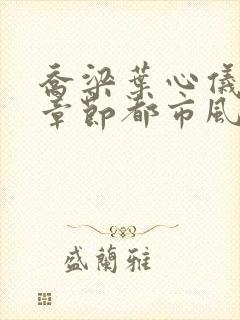 喬梁葉心儀
章節都市風
盛蘭雅